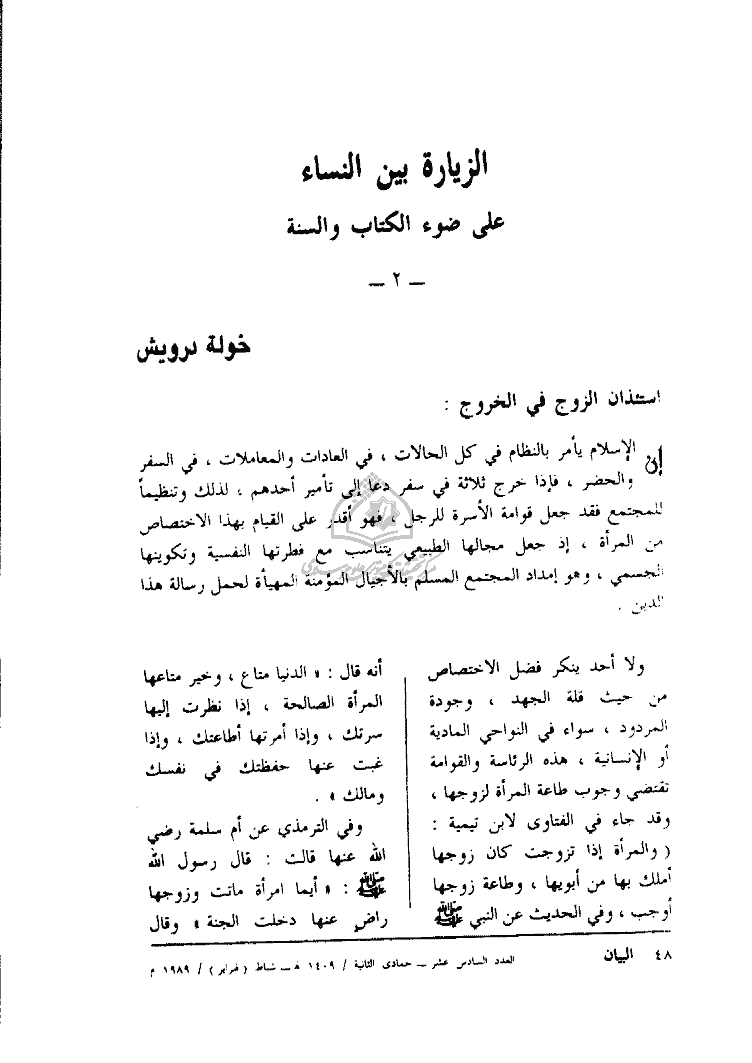 الزيارة بين النساء
على ضوء الكتاب والسنة
— ٢ —
خولة درويش
استئذان الزوج في الخروج :
إن الإسلام يأمر بالنظام في كل الحالات ، في العادات والمعاملات ، في السفر
والحضر ، فإذا خرج ثلاثة في سفر دعا إلى تأمير أحدهم ، لذلك وتنظيماً
للمجتمع فقد جعل قوامة الأسرة للرجل ، فهو أقدر على القيام بهذا الاختصاص
من المرأة ، إذ جعل مجالها الطبيعي يتناسب مع فطرتها النفسية وتكوينها
الجسمي ، وهو إمداد المجتمع المسلم بالأجيال المؤمنة المهيأة لحمل رسالة هذا
الدين .
ولا أحد ينكر فضل الاختصاص
من حيث قلة الجهد ، وجودة
المردود ، سواء في النواحي المادية
أو الإنسانية ، هذه الرئاسة والقوامة
تقتضي وجوب طاعة المرأة لزوجها ،
وقد جاء في الفتاوى لابن تيمية :
( والمرأة إذا تزوجت كان زوجها
أملك بها من أبويها ، وطاعة زوجها
أوجب ، وفي الحديث عن النبي ﷺ
أنه قال : « الدنيا متاع ، وخير متاعها
المرأة الصالحة ، إذا نظرت إليها
سرتك ، وإذا أمرتها أطاعتك ، وإذا
غبت عنها حفظتك في نفسك
ومالك » .
وفي الترمذي عن أم سلمة رضي
الله عنها قالت : قال رسول الله
ﷺ : « أيما امرأة ماتت وزوجها
راضٍ عنها دخلت الجنة » وقال
٤٨ البيان العدد السادس عشر — جمادى الثانية / ١٤٠٩ هـ — شباط ( فبراير ) / ١٩٨٩ م